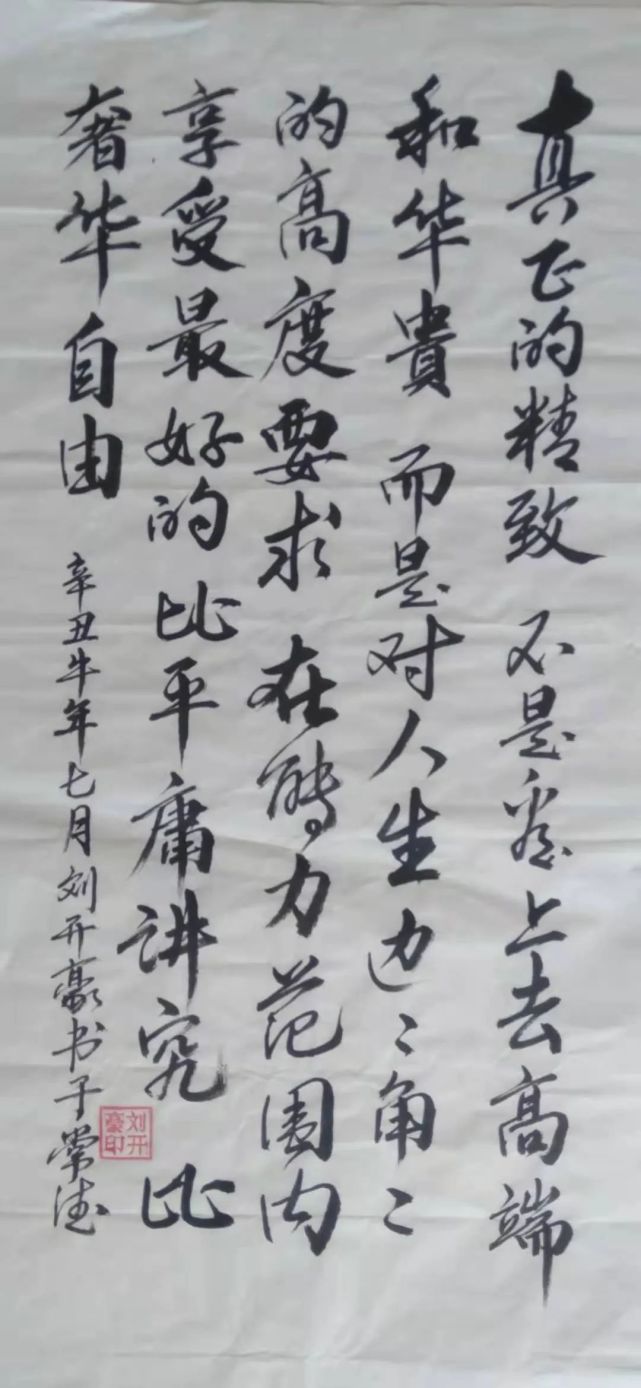 真正的精致不是看上去高端
和华貴而是对人生边〻角〻
的高度要求在能力范围内
享受最好的比平庸讲究比
奢华自由
辛丑牛年七月刘开豪书于常德
刘开豪印